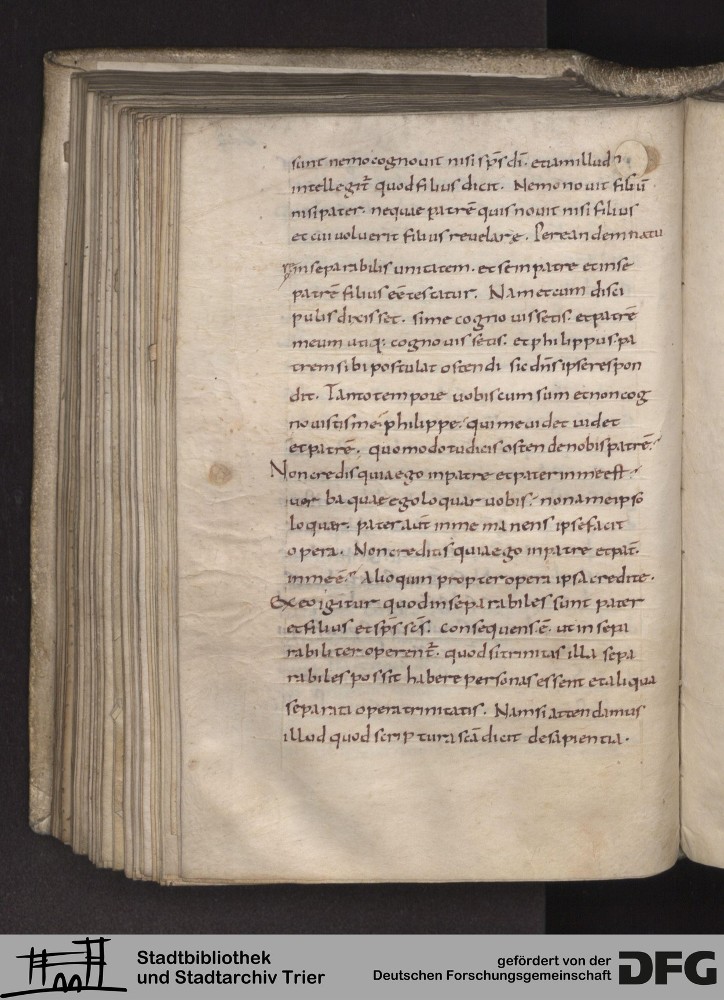 sunt nemo cognouit nisi sp̄s dī. etiam illud
intellegit̄ quod filius dicit. Nemo nouit filiū
nisi pater. neque patrē quis nouit nisi filius
et cui uoluerit filius reuelare. Per eandem natu
re inseparabilis unitatem. et sem patre et in se
patrē filius eē testatur. Nam et cum disci
pulis dixisset. si me cognouissetis. et patrē
meum utiq; cognouissetis. et philippus pa
trem sibi postulat ostendi sic dn̄s ipse respon
dit. Tanto tempore uobiscum sum et non cog
nouistis me philippe. qui me uidet uidet
et patrē. quomodo tu dicis ostende nobis patrē.
Non credis quia ego in patre et pater in me est.
uerba quae ego loquar uobis. non a me ipso
loquar. pater aūt in me manens ipse facit
opera. Non creditis quia ego in patre et pat̄.
in me ē. Alioquin propter opera ipsa credite.
Ex eo igitur quod inseparabiles sunt pater
et filius et sp̄s sc̄s. consequens ē. ut insepa
rabiliter operent̄. quod si trinitas illa sepa
rabiles possit habere personas essent et aliqua
separata opera trinitatis. Nam si attendamus
illud quod scriptura sc̄a dicit de sapientia.
Stadtbibliothek
und Stadtarchiv Trier
gefördert von der
Deutschen Forschungsgemeinschaft
DFG